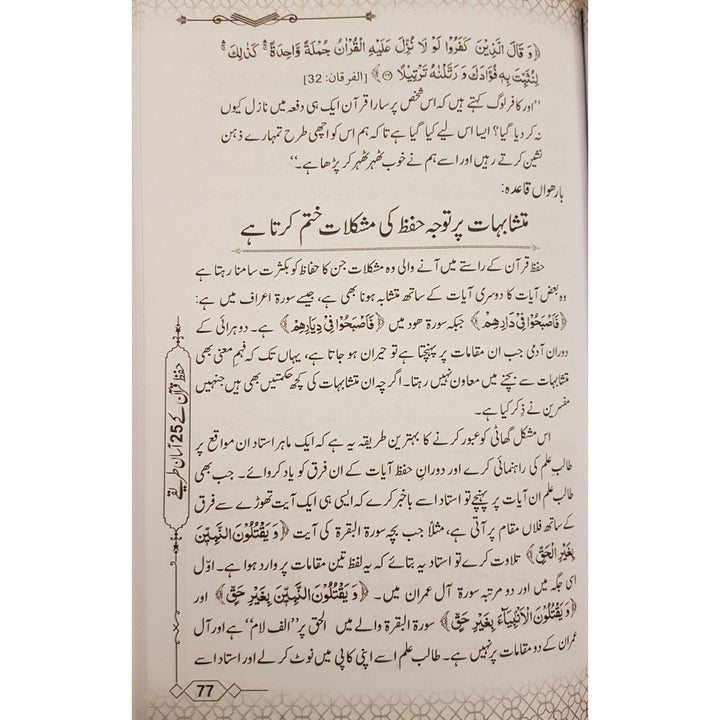 ﴿وَ قَالَ الَّذِيْنَ كَفَرُوْا لَوْ لَا نُزِّلَ عَلَيْهِ الْقُرْاٰنُ جُمْلَةً وَّاحِدَةً ۛۚ كَذٰلِكَ ۛۚ
لِنُثَبِّتَ بِهٖ فُؤَادَكَ وَ رَتَّلْنٰهُ تَرْتِيْلًا ﴾ [الفرقان: 32]
”اور کافر لوگ کہتے ہیں کہ اس شخص پر سارا قرآن ایک ہی دفعہ میں نازل کیوں
نہ کر دیا گیا؟ ایسا اس لیے کیا گیا ہے تا کہ ہم اس کو اچھی طرح تمہارے ذہن
نشین کرتے رہیں اور اسے ہم نے خوب ٹھہر ٹھہر کر پڑھا ہے۔“
بارھواں قاعدہ:
متشابہات پر توجہ حفظ کی مشکلات ختم کرتا ہے
حفظ قرآن کے راستے میں آنے والی وہ مشکلات جن کا حفاظ کو بکثرت سامنا رہتا ہے
وہ بعض آیات کا دوسری آیات کے ساتھ متشابہ ہونا بھی ہے، جیسے سورۃ اعراف میں ہے:
﴿فَاَصْبَحُوْا فِيْ دَارِهِمْ﴾ جبکہ سورۃ ھود میں ﴿فَاَصْبَحُوْا فِيْ دِيَارِهِمْ﴾ ہے۔ دوہرائی کے
دوران آدمی جب ان مقامات پر پہنچتا ہے تو حیران ہو جاتا ہے، یہاں تک کہ فہم معنی بھی
متشابہات سے بچنے میں معاون نہیں رہتا۔ اگر چہ ان متشابہات کی کچھ حکمتیں بھی ہیں جنہیں
مفسرین نے ذِکر کیا ہے۔
اس مشکل گھاٹی کو عبور کرنے کا بہترین طریقہ یہ ہے کہ ایک ماہر استاد ان مواقع پر
طالب علم کی راہنمائی کرے اور دورانِ حفظ آیات کے ان فرق کو یاد کروائے۔ جب بھی
طالب علم ان آیات پر پہنچے تو استاد اسے باخبر کرے کہ ایسی ہی ایک آیت تھوڑے سے فرق
کے ساتھ فلاں مقام پر آتی ہے، مثلاً جب بچہ سورۃ البقرۃ کی آیت ﴿وَ يَقْتُلُوْنَ النَّبِيّٖنَ
بِغَيْرِ الْحَقِّ﴾ تلاوت کرے تو استاد یہ بتائے کہ یہ لفظ تین مقامات پر وارد ہوا ہے۔ اوّل
اسی جگہ میں اور دو مرتبہ سورۃ آل عمران میں۔ ﴿وَ يَقْتُلُوْنَ النَّبِيّٖنَ بِغَيْرِ حَقٍّ﴾ اور
﴿وَ يَقْتُلُوْنَ الْاَنْبِيَآءَ بِغَيْرِ حَقٍّ﴾ سورۃ البقرۃ والے میں الحق پر ”الف لام“ ہے اور آل
عمران کے دو مقامات پر نہیں ہے۔ طالب علم اسے اپنی کاپی میں نوٹ کر لے اور استاد اسے
حفظ قرآن کے 25 آسان طریقے
77